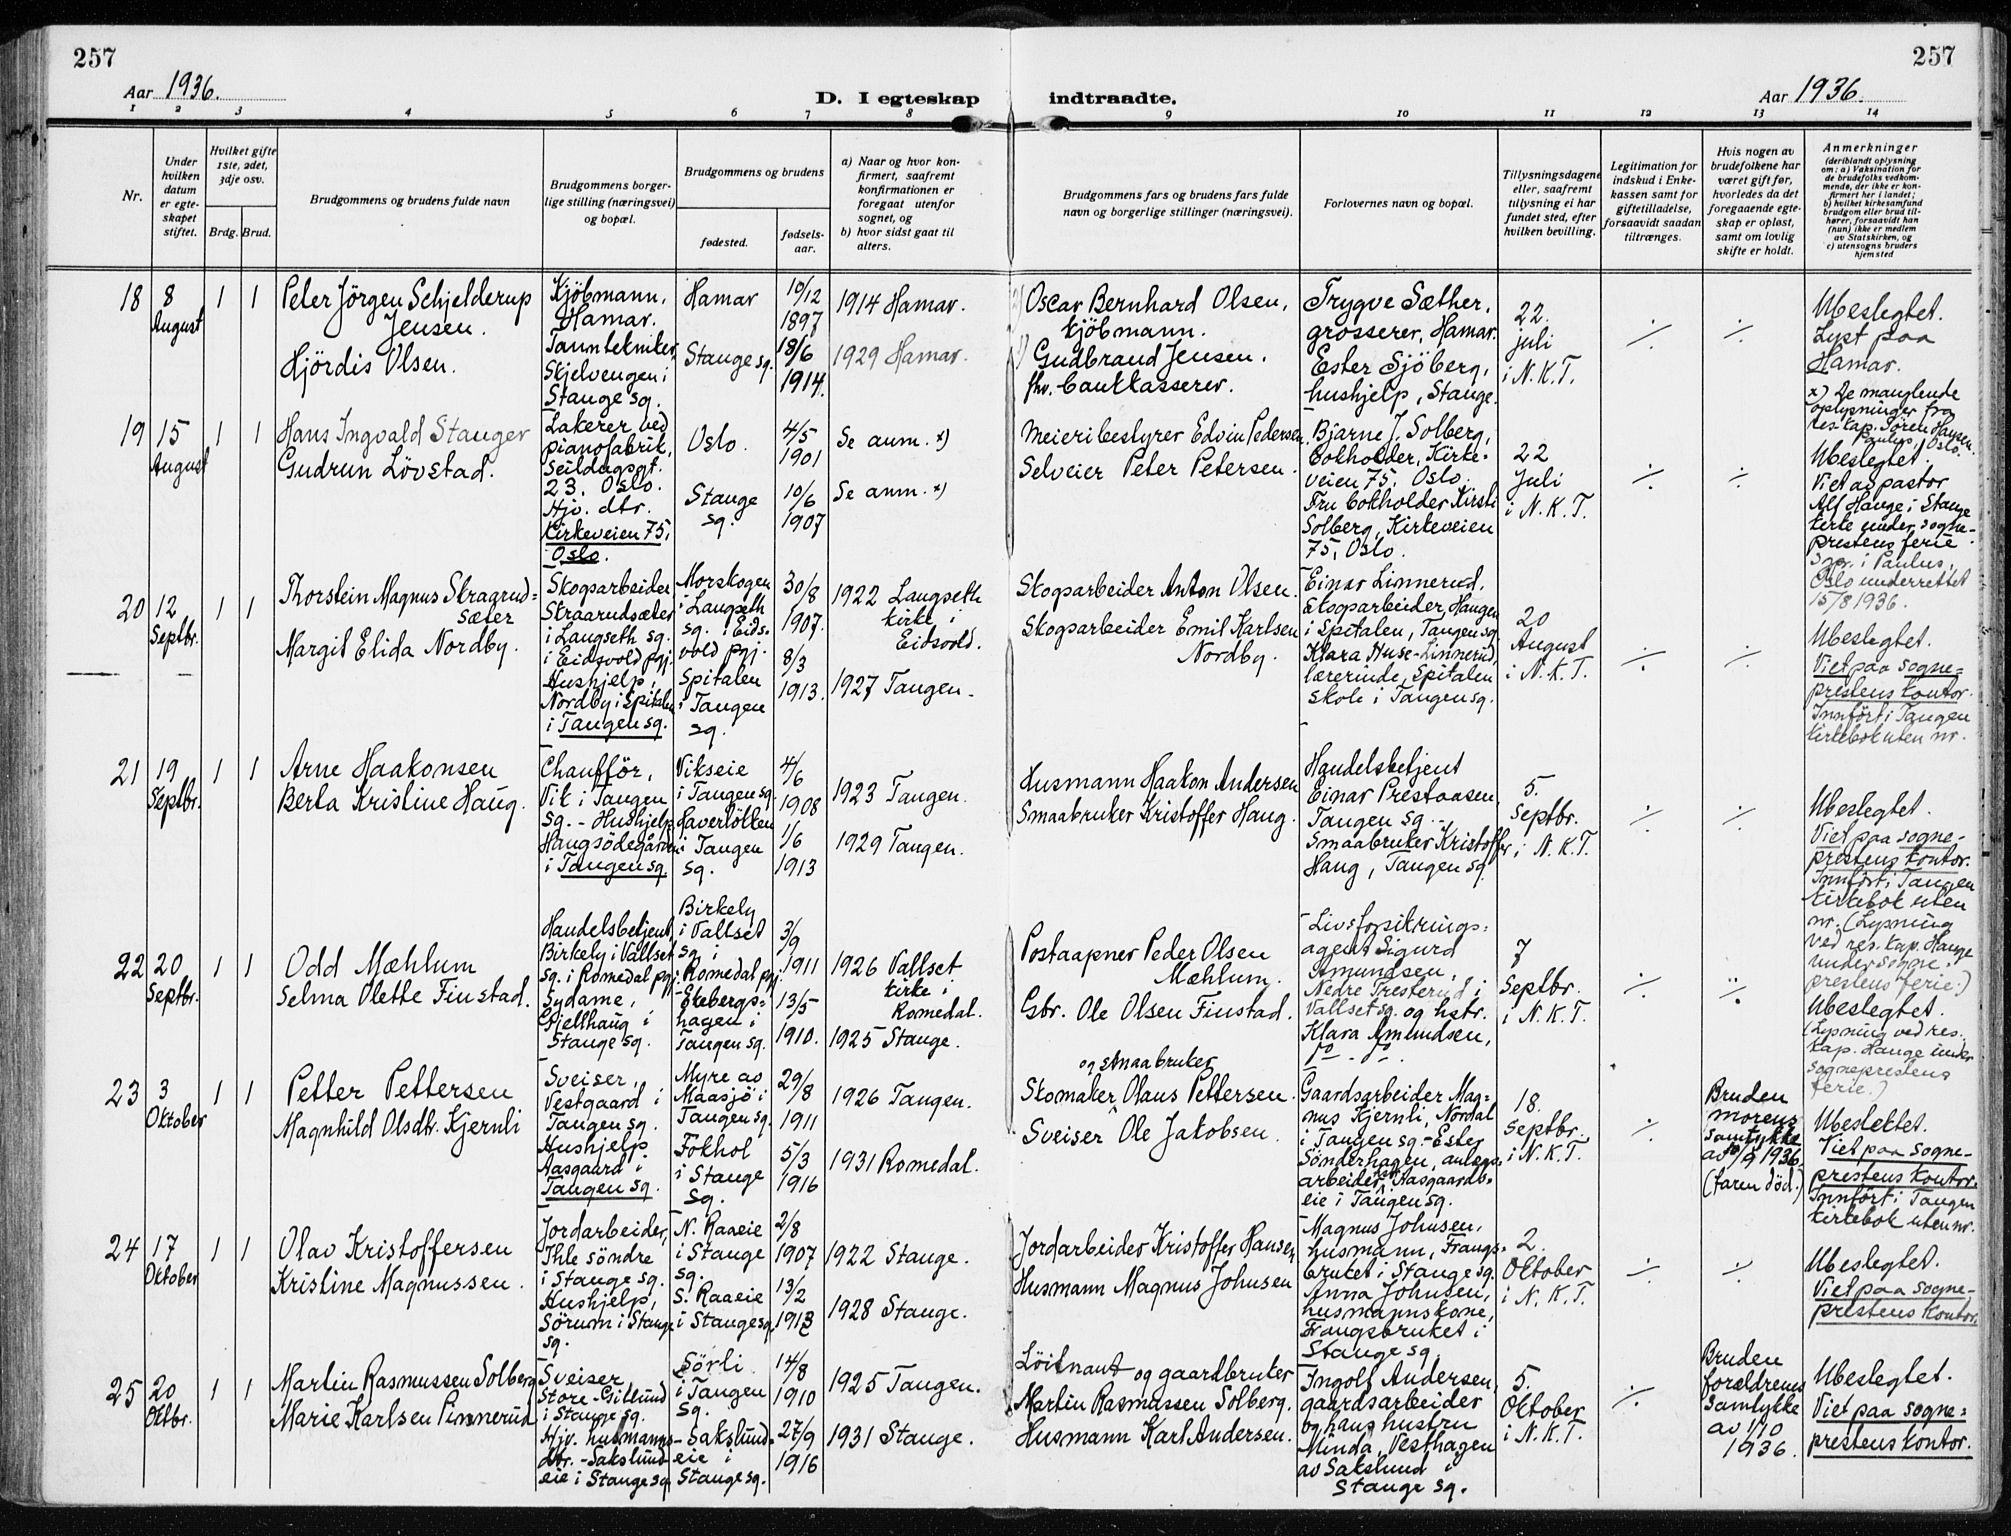 257
257
Aar 1936.
Aar 1936.
D. I egteskap indtraadte.
1 2 3 4 5 6 7 8 9 10 11 12 13 14
Nr.
Under
hvilken
datum
er egte-
skapet
stiftet.
Hvilket gifte
1ste, 2det,
3dje osv.
Brdg. Brud.
Brudgommens og brudens fulde navn
Brudgommens borger-
lige stilling (næringsvei)
og bopæl.
Brudgommens og brudens
fødested.
fødsels-
aar.
a) Naar og hvor kon-
firmert, saafremt
konfirmationen er
foregaat utenfor
sognet, og
b) hvor sidst gaat til
alters.
Brudgommens fars og brudens fars fulde
navn og borgerlige stillinger (næringsvei).
Forlovernes navn og bopæl.
Tillysningsdagene
eller, saafremt
tillysning ei har
fundet sted, efter
hvilken bevilling.
Legitimation for
indskud i Enke-
kassen samt for
giftetilladelse,
forsaavidt saadan
tiltrænges.
Hvis nogen av
brudefolkene har
været gift før,
hvorledes da det
foregaaende egte-
skap er opløst,
samt om lovlig
skifte er holdt.
Anmerkninger
(deriblandt oplysning
om: a) Vaksination for
de brudefolks vedkom-
mende, der ikke er kon-
firmert her i landet;
b) hvilket kirkesamfund
brudgom eller brud til-
hører, forsaavidt han
(hun) ikke er medlem
av Statskirken, og
c) utensogns bruders
hjemsted
18
8
August
1 1
Peter Jörgen Schjelderup
Jensen.
Hjördis Olsen.
Kjöbmann,
Hamar.
Tanntekniker,
Skjelvengen i
Stange sg.
Hamar
Stange sg.
10/12
1897
18/6
1914.
1914 Hamar.
1929 Hamar.
Oscar Bernhard Olsen,
kjöbmann.
Gudbrand Jensen,
fhv. bankkasserer.
Trygve Sæther,
grosserer, Hamar.
Ester Sjöberg,
hushjelp, Stange.
22.
juli
i N.K.T.
÷
÷
Ubeslegtet.
Lyst paa
Hamar.
19
15
August
1 1
Hans Ingvald Stanger
Gudrun Lövstad.
Lakerer ved
pianofabrik,
Seildugsgt.
23, Oslo.
Hjv. dtr.
Kirkeveien 75,
Oslo.
Oslo.
Stange
sg.
4/5
1901
10/6
1907
Se anm. x)
Se anm. x)
Meieribestyrer Edvin Pedersen
Selveier Peter Petersen.
Bjarne J. Solberg,
bokholder, Kirke-
veien 75, Oslo.
Fru bokholder Kirsti
Solberg, Kirkeveien
75, Oslo.
22
Juli
i N.K.T.
÷
÷
x) De manglende
oplysninger fra
res. kap. Sören Hansen,
Paulus, Oslo.
Ubeslegtet.
Viet av pastor
Alf Hauge i Stange
kirke under sogne-
prestens ferie.
Spr. i Paulus,
Oslo underrettet
15/8 1936.
20
12
Septbr.
1 1
Thorstein Magnus Straarud-
sæter
Margit Elida Nordby.
Skogsarbeider
Straarudsæter
i Langseth sg.
i Eidsvold pgj.
Hushjelp,
Nordby i Spitalen
i Tangen sg.
Morskogen
i Langseth
sg. i Eids-
vold pgj.
Spitalen
i Tangen
sg.
30/8
1907.
8/3
1913.
1922 Langseth
kirke i
Eidsvold.
1927 Tangen.
Skogsarbeider Anton Olsen.
Skogsarbeider Emil Karlsen
Nordby.
Einar Linnerud,
skogsarbeider, Haugen
i Spitalen, Tangen sg.
Klara Huse-Linnerud,
lærerinde, Spitalen
skole i Tangen sg.
20
August
i N.K.T.
÷
÷
Ubeslegtet.
Viet paa sogne-
prestens kontor.
Innfört i Tangen
kirkebok uten nr.
21
19
Septbr.
1 1
Arne Haakonsen
Berta Kristine Haug.
Chaufför,
Vik i Tangen
sg. - Hushjelp
Haugsödegården
i Tangen sg.
Vikseie
i Tangen sg.
Haverlökken
i Tangen
sg.
4/6
1908
1/6
1913
1923 Tangen.
1929 Tangen.
Husmann Haakon Andersen
Smaabruker Kristoffer Haug.
Handelsbetjent
Einar Prestaasen,
Tangen sg.
Smaabruker Kristoffer
Haug, Tangen sg.
5.
Septbr.
i N.K.T.
÷
÷
Ubeslegtet.
Viet paa sogne-
prestens kontor.
Innfört i Tangen
kirkebok uten
nr. (Lysning
ved res. kap. Hauge
under sogne-
prestens ferie.)
22
20
Septbr.
1 1
Odd Mæhlum
Selma Olette Finstad.
Handelsbetjent,
Birkely i Vallset
sg. i Romedal pgj.
Sydame,
Fjellhaug i
Stange sg.
Birkely
i Vallset
sg. i
Romedal pgj.
Ekebergs-
hagen i
Tangen sg.
3/9
1911
13/5
1910.
1926 Vallset
kirke i
Romedal.
1925 Stange.
Postaapner Peder Olsen
Mæhlum.
Gbr. Ole Olsen Finstad.
Livsforsikrings-
agent Sigurd
Amundsen,
Nedre Tresterud i
Vallset sg. og hstr.
Klara Amundsen,
7
Septbr.
i N.K.T.
÷
÷
Ubeslegtet.
(Lysning ved res.
kap. Hauge under
sogneprestens
ferie.)
23
3
Oktober
1 1
Petter Pettersen
Magnhild Olsdtr. Kjernli
Sveiser,
Vestgaard i
Tangen sg.
Hushjelp
Aasgaard i
Tangen sg.
Myre av
Maasjö i
Tangen sg.
Fokhol
i Stange
sg.
29/8
1911
5/3
1916
1926 Tangen.
1931 Romedal.
og smaabruker
Skomaker Olaus Pettersen.
Sveiser Ole Jakobsen.
Gaardsarbeider Mag-
nus Kjernli, Nordal
i Tangen sg. - Ester
Sönderhagen, anlegs-
arbeider hstr., Aasgaards-
eie i Tangen sg.
18.
Septbr.
i N.K.T.
÷
Bruden
morens
samtykke
av 9/9 1936.
(faren död.)
Ubeslektet.
Viet paa sogne-
prestens kontor.
Innfört i Tangen
kirkebok uten nr.
24
17
Oktober
1 1
Olav Kristoffersen
Kristine Magnussen.
Jordarbeider,
Ihle söndre
i Stange sg.
Hushjelp,
Sörum i Stange
sg.
N. Raaeie
i Stange
sg.
S. Raaeie
i Stange sg.
2/8
1907
13/2
1913
1922 Stange.
1928 Stange.
Jordarbeider Kristoffer Hansen
Husmann Magnus Johnsen
Magnus Johnsen,
husmann, Frangs-
bruket i Stange sg.
Anna Johnsen,
husmannskone,
Frangsbruket i
Stange sg.
2.
Oktober
i N.K.T.
÷
÷
Ubeslegtet.
Viet paa sogne-
prestens kontor.
25
20
Oktbr.
1 1
Martin Rasmussen Solberg
Marie Karlsen Pinnerud
Sveiser
Store-Gillund
i Stange sg.
Hjv. husmanns-
dtr. - Sakslund-
eie i Stange sg.
Sörli
i Tangen
sg.
Sakslund-
eie i
Stange sg.
14/8
1910
27/9
1916
1925 Tangen.
1931 Stange.
Löitnant og gaardbruker
Martin Rasmussen Solberg.
Husmann Karl Andersen.
Ingolf Andersen,
gaardsarbeider
og hans hustru
Minda, Vesthagen
av Sakslund i
Stange sg.
5.
Oktober
i N.K.T.
÷
Bruden
forældrenes
samtykke
av 1/10
1936.
Ubeslegtet.
Viet paa sogne-
prestens kontor.